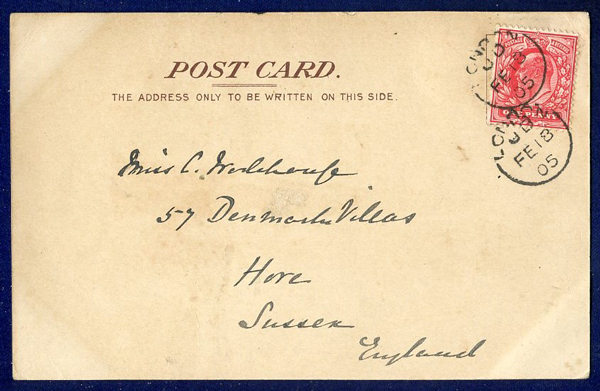 POST CARD.
THE ADDRESS ONLY TO BE WRITTEN ON THIS SIDE.
LONDON
FE 18
05
LONDON
FE 18
05
Miss C. Wodehouse
57 Denmark Villas
Hove
Sussex
England